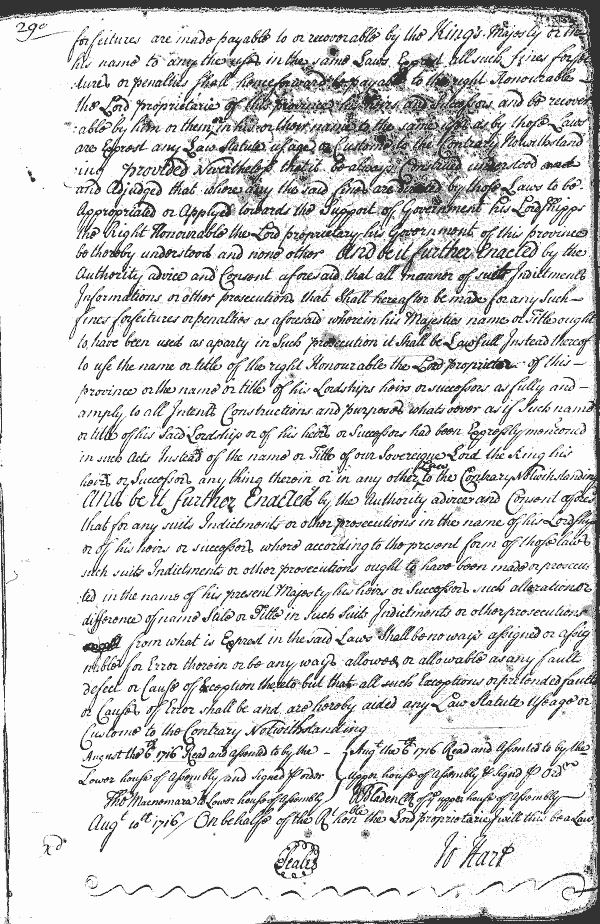 290
forfeitures are made payable to or recoverable by the Kings Majesty or in
his name to any the uses in the same Laws Exprest all such fines forfei
tures or penalties shall henceforward be payable to the right Honourable
the Lord proprietarie of this province his heirs and Successors and be recover
able by him or them or in his or their name to the same uses as by those Laws
are Exprest any Law Statute usage or Custome to the Contrary Notwithstand
ing Provided Nevertheless that it be always Construed understood and
and Adjudged that where any the said fines are directed by those Laws to be
Appropriated or Applyed towards the Support of Government his Lordshipps
the Right Honourable the Lord proprietary his Government of this province
be thereby understood and none other And be it further Enacted by the
Authority advice and Consent aforesaid that all manner of such Indictments
Informations or other prosecutions that Shall hereafter be made for any Such
fines forfeitures or penalties as aforesaid wherein his Majesties name or Title ought
to have been used as a party in Such prosecution it shall be Lawfull Instead thereof
to use the name or title of the right Honourable the Lord proprietor of this
province or the name or title of his Lordships heirs or successors as fully and
amply to all Intents Constructions and purposes whatsoever as if Such name
or title of his said Lordship or of his heirs or Successors had been Expressly mentioned
in such Acts Instead of the name or Title of our Sovereign Lord the King his
heirs or Successors any thing therein or in any other Laws to the Contrary Notwithstanding
And be it further Enacted by the Authority advice and Consent afores
that for any suits Indictments or other prosecutions in the name of his Lordship
or of his heirs or successors where according to the present form of those Laws
such suits Indictments or other prosecutions ought to have been made or prosecu
ted in the name of his present Majesty his heirs or Successors such alteration or
difference of name Stile or Title in such Suits Indictments or other prosecutions
from what is Exprest in the said Laws Shall be no ways assigned or assig
nable for Error therein or be any ways allowed or allowable as any fault
defect or Cause of Exception thereto but that all such Exceptions or pretended faults
or Causes of Error shall be and are hereby aided any Law Statute Usage or
Custome to the Contrary Notwithstanding
August the 6th 1716 Read and assented to by the
Lower house of Assembly and signed p order
Tho Macnemara Cl Lower house of Assembly
Augt the 6th 1716 Read and Assented to by the
Upper house of Assembly & Signd p Order
W Bladen Cl of ye upper house of Assembly
Augt 10th 1716 / On behalfe of the Rt honble the Lord proprietarie I will this be a Law
Xd
Seale
Jo Hart